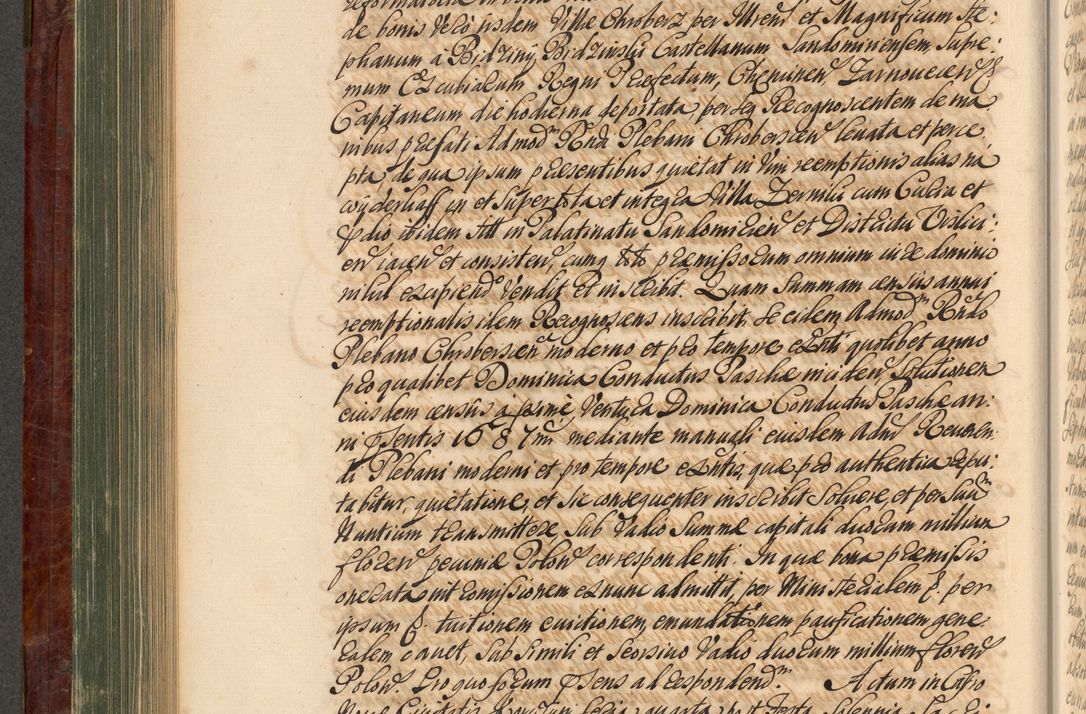 de bonis vero ijsdem Villæ Chroberz per Illrem et Magnificum Ste:
phanum à Bidziny Bidzinski Castellanum Sandomiriensem Supre:
mum Excubiarum Regni Præfectum, Chencinen Zarnovecen
Capitaneum die hodierna deportata, per seq Recognoscentem de ma
nibus præfati Admod Rndi Plebani Chrobersien levata et perce
pta, de qua ipsum præsentibus quietat in vim reemptionis alias na
wyderkaff in et super tota et integra Villa Zerniki cum Curia et
prædio ibidem in Palatinatu Sandomirien et Districtu Vislici:
en iacen et consisten, cumq toto præmissorum omnium iure dominio
nihil excipiend vendit et inscribit. Quam Summam census annui
reemptionalis idem Recognoscens inscribit, se eidem Admod Rndo
Plebano Chrobersien moderno et pro tempore exnti quolibet anno
pro qualibet Dominica Conductus Paschæ inciden Solutionem
eiusdem census à primè Ventura Dominica Conductus Paschæ an:
ni psentis 1687mi mediante manuali eiusdem Adm Reveren:
di Plebani moderni et pro tempore exntis, quæ pro authentica repu:
tabitur, quietatione, et sic consequenter inscribit Solvere, et per suu
Nuntium transmittere, sub Vadio Summæ capitali duorum millium
floren pecuniæ Polon correspondenti. In quæ bona præmissis
onerata intromissionem exnunc admittit, per Ministerialem per
ipsum tuitionem evictionem, emundationem pacificationem gene
ralem cavet, sub simili et seorsivo Vadio duorum millium floren
Polon. Pro quo forum psens ad respondend. Actum in Castro